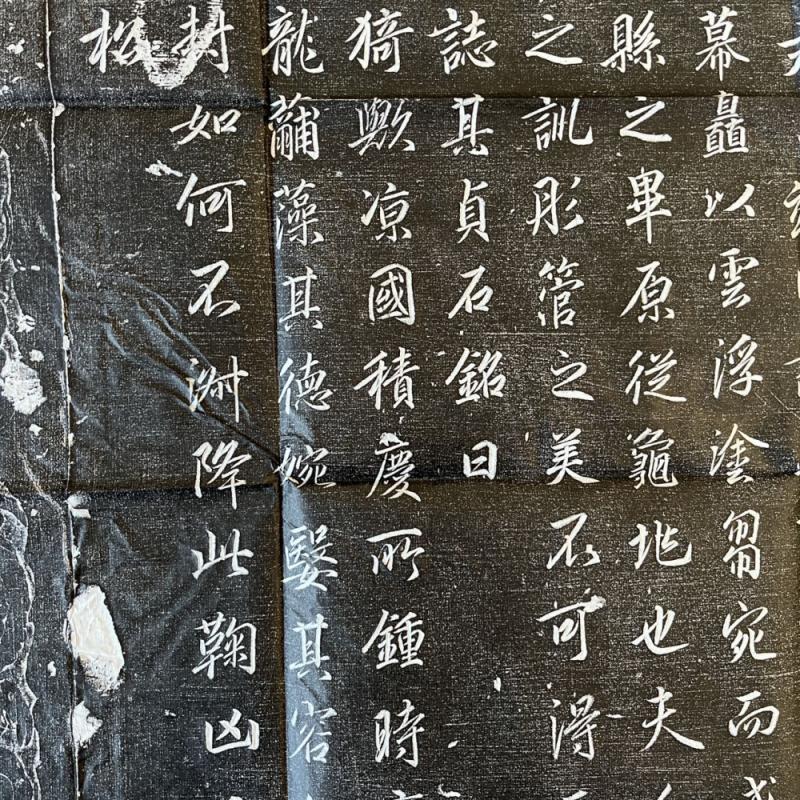 幕矗以雲浮塗芻宛而
縣之畢原從龜兆也夫
之訓彤管之美不可得
誌其貞石銘曰
猗歟凉國積慶所鍾時
龍黼藻其德婉嫕其容
封如何不淑降此鞠凶
松